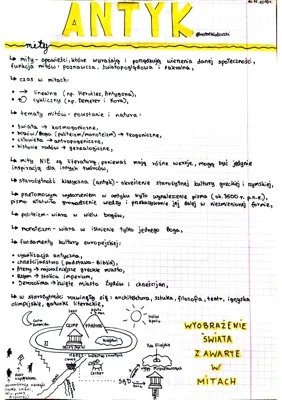 ANTYK
mity
↳ mity - opowieści, które wyrażają i porządkują wierzenia danej społeczności,
funkcja mitów: poznawcza, światopoglądowa i sakralna,
↳ czas w mitach:
→ linearny (np. Herakles, Antygona),
cykliczny (np. Demeter i Kora),
↳ tematy mitów - powstanie i natura:
• świata → kosmogoniczne,
• bogów/boga (politeizm/monoteizm) → teogoniczne,
• człowieka → antropogeniczne,
• historie rodów → genealogiczne,
↳ mity NIE są literaturą, ponieważ mają różne wersje, mogą być jedynie
inspiracją dla innych twórców,
↳ starożytność klasyczna (antyk) - określenie starożytnej kultury greckiej i rzymskiej,
↳ przełomowym wydarzeniem w antyku było wynalezienie pisma (ok. 3500 r. p.n.e.),
pismo ułatwiło gromadzenie wiedzy i przekazywanie jej dalej w niezmienionej formie,
↳ politeizm - wiara w wielu bogów,
↳ monoteizm - wiara w istnienie tylko jednego Boga,
↳ fundamenty kultury europejskiej:
• cywilizacja antyczna,
• chrześcijaństwo (podstawa - Biblia),
• Ateny → najważniejsze greckie miasto,
• Rzym → stolica imperium,
• Jerozolima → święte miasto Żydów i chrześcijan,
↳ w starożytności rozwinęły się: architektura, sztuka, filozofia, teatr, igrzyska
olimpijskie, gatunki literackie,
OLIMP
PARNAS
WYOBRAŻENIE
ŚWIATA
ZAWARTE
W
MITACH